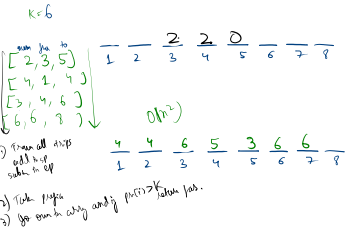 K = 6
num from to
[ 2, 3, 5 ]
[ 4, 1, 4 ]
[ 3, 4, 6 ]
[ 6, 6, 8 ]
2 2 0
1 2 3 4 5 6 7 8
O(n²)
4 4 6 5 3 6 6
1 2 3 4 5 6 7 8
1) all trips
add sp
ep
2) Take prefix
3) go over in array and if pr(i) > K return